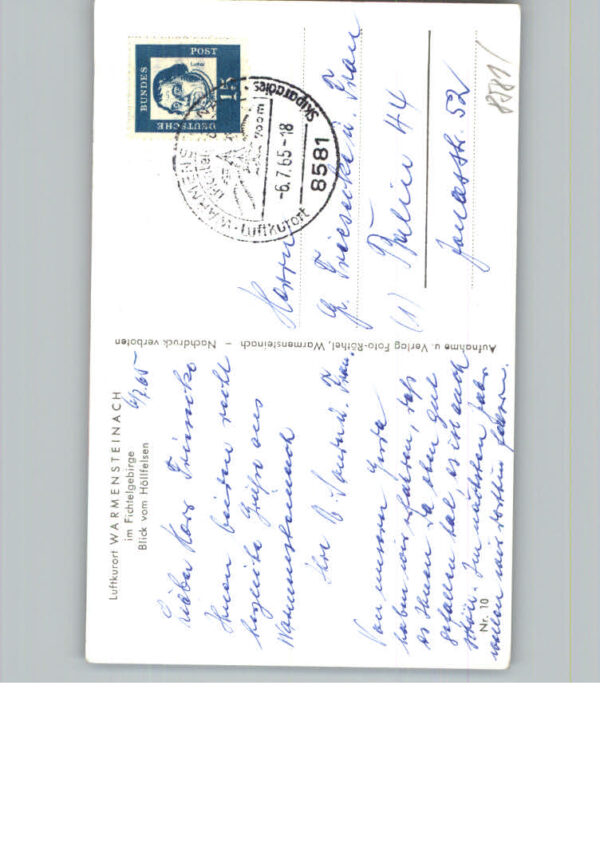 Luftkurort WARMENSTEINACH
im Fichtelgebirge
Blick vom Höllfelsen
6/7.65
Lieber Herr Friesicke
Ihnen beiden recht
herzliche Grüße aus
Warmensteinach
Ihre u. Frau.
Von unserer Gerda
haben wir erfahren, daß
es Ihnen da oben gut
gefallen hat, es ist auch
schön. Im nächsten Jahr
wollen wir dorthin fahren.
Nr. 10
Aufnahme u. Verlag Foto-Röthel, Warmensteinach – Nachdruck verboten
DEUTSCHE BUNDES POST
15
Luther
WARMENSTEINACH
Luftkurort
Skiparadies
-6.7.65-18
8581
Herrn
Friesicke u. Frau
(1) Berlin 44
Jonasstr. 52
8581/